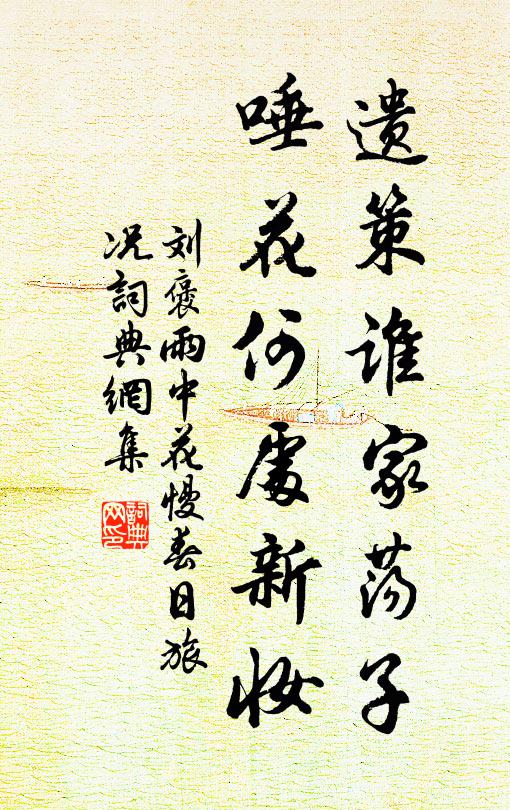 遗策谁家荡子
唾花何處新妆
刘褒雨中花慢春日旅
况詞典網集
詞典网印